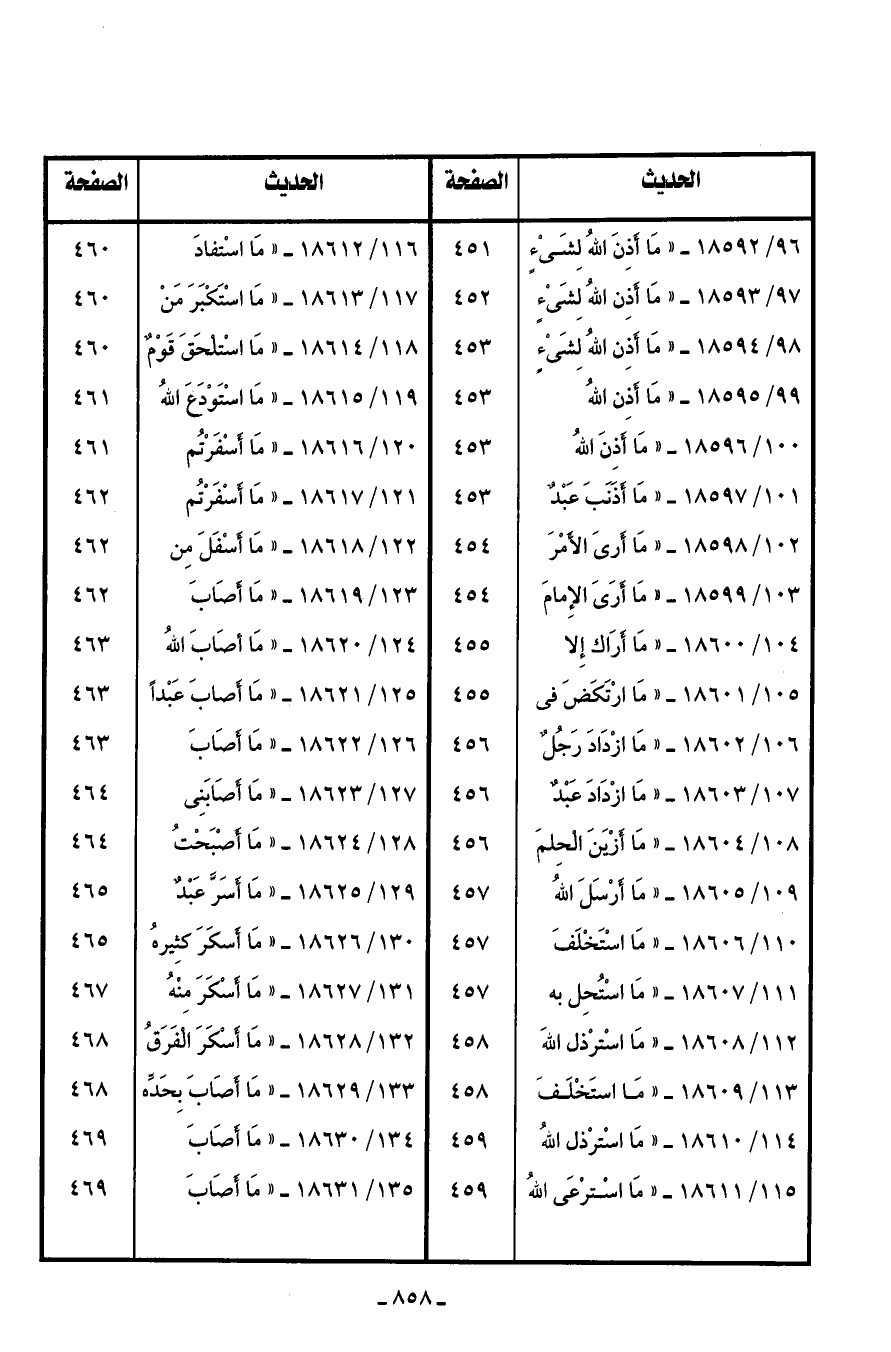 الحديث الصفحة الحديث الصفحة
٩٦/ ١٨٥٩٢ ـ « مَا أَذِنَ اللهُ لِشَىْءٍ ٤٥١ ١١٦/ ١٨٦١٢ ـ « مَا اسْتفادَ ٤٦٠
٩٧/ ١٨٥٩٣ ـ « مَا أَذِن اللهُ لِشَىْءٍ ٤٥٢ ١١٧/ ١٨٦١٣ ـ « مَا اسْتَكْبَرَ مَنْ ٤٦٠
٩٨/ ١٨٥٩٤ ـ « مَا أَذِن اللهُ لِشَىْءٍ ٤٥٣ ١١٨/ ١٨٦١٤ ـ « مَا استلْحَقَ قَوْمٌ ٤٦٠
٩٩/ ١٨٥٩٥ ـ « مَا أَذِن اللهُ ٤٥٣ ١١٩/ ١٨٦١٥ ـ « مَا اسْتَوْدَعَ اللهُ ٤٦١
١٠٠/ ١٨٥٩٦ ـ « مَا أَذِنَ اللهُ ٤٥٣ ١٢٠/ ١٨٦١٦ ـ « مَا أَسْفَرْتُم ٤٦١
١٠١/ ١٨٥٩٧ ـ « مَا أَذَنَبَ عَبْدٌ ٤٥٣ ١٢١/ ١٨٦١٧ ـ « مَا أَسْفَرْتُم ٤٦٢
١٠٢/ ١٨٥٩٨ ـ « مَا أَرىَ الأَمْرَ ٤٥٤ ١٢٢/ ١٨٦١٨ ـ « مَا أَسْفَلَ مِن ٤٦٢
١٠٣/ ١٨٥٩٩ ـ « مَا أَرَىَ الإِمامَ ٤٥٤ ١٢٣/ ١٨٦١٩ ـ « مَا أَصَابَ ٤٦٢
١٠٤/ ١٨٦٠٠ ـ « مَا أَرَاك إِلا ٤٥٥ ١٢٤/ ١٨٦٢٠ ـ « مَا أصَابَ اللهُ ٤٦٣
١٠٥/ ١٨٦٠١ ـ « مَا ارْتَكَضَ فى ٤٥٥ ١٢٥/ ١٨٦٢١ ـ « مَا أَصابَ عَبْداً ٤٦٣
١٠٦/ ١٨٦٠٢ ـ « مَا ازْدَادَ رَجُلٌ ٤٥٦ ١٢٦/ ١٨٦٢٢ ـ « مَا أَصَابَ ٤٦٣
١٠٧/ ١٨٦٠٣ ـ « مَا ازْدَادَ عَبْدٌ ٤٥٦ ١٢٧/ ١٨٦٢٣ ـ « مَا أَصَابَنِى ٤٦٤
١٠٨/ ١٨٦٠٤ ـ « مَا أَزْيَنَ الْحِلمَ ٤٥٦ ١٢٨/ ١٨٦٢٤ ـ « مَا أَصْبَحْتُ ٤٦٤
١٠٩/ ١٨٦٠٥ ـ « مَا أَرْسَلَ اللهُ ٤٥٧ ١٢٩/ ١٨٦٢٥ ـ « مَا أَسَرَّ عَبْدٌ ٤٦٥
١١٠/ ١٨٦٠٦ ـ « مَا اسْتَخْلَفَ ٤٥٧ ١٣٠/ ١٨٦٢٦ ـ « مَا أَسكَرَ كثِيرهُ ٤٦٥
١١١/ ١٨٦٠٧ ـ « مَا اسْتُحِل به ٤٥٧ ١٣١/ ١٨٦٢٧ ـ « مَا أَسْكَرَ مِنْهُ ٤٦٧
١١٢/ ١٨٦٠٨ ـ « مَا استرْذل اللهَ ٤٥٨ ١٣٢/ ١٨٦٢٨ ـ « مَا أَسْكَرَ الْفَرَقُ ٤٦٨
١١٣/ ١٨٦٠٩ ـ « مَـا استَخْلَـفَ ٤٥٨ ١٣٣/ ١٨٦٢٩ ـ « مَا أَصَابَ بِحَدِّه ٤٦٨
١١٤/ ١٨٦١٠ ـ « مَا اسْترْذل اللهُ ٤٥٩ ١٣٤/ ١٨٦٣٠ ـ « مَا أَصَابَ ٤٦٩
١١٥/ ١٨٦١١ ـ « مَا اسْـترْعَى اللهُ ٤٥٩ ١٣٥/ ١٨٦٣١ ـ « مَا أَصَابَ ٤٦٩
ـ ٨٥٨ ـ